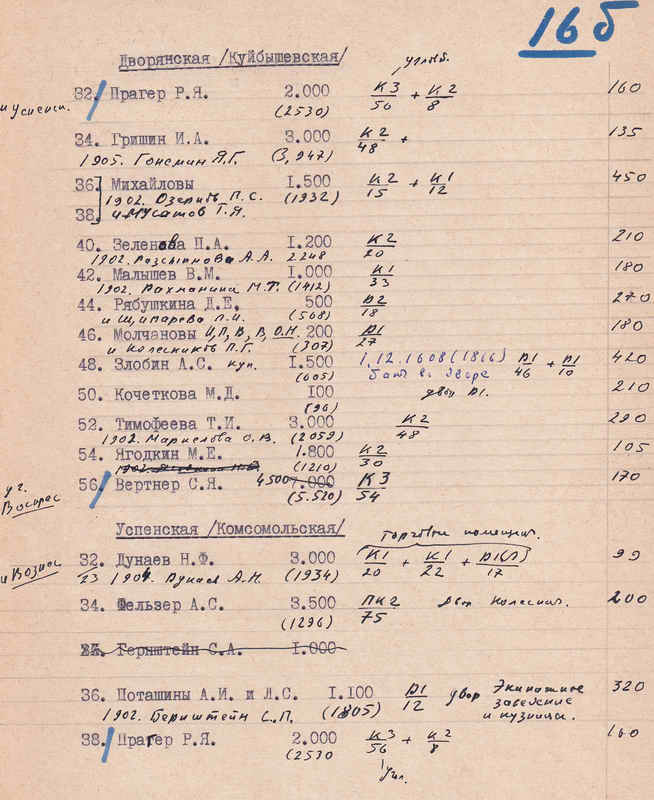 16б
Дворянская /Куйбышевская/
угловой.
32. Прагер Р.Я. 2.000 К3/56 + К2/8 160
и Успенск. (2530)
34. Гришин И.А. 3.000 К2/48 + 135
1905. Я.Г. (3,247)
36. Михайловы 1.500 К2/15 + К1/12 450
1902. П.С. (1932)
38. и Мусатов Т.Я.
40. Зеленова П.А. 1.200 К2/20 210
1902. А.А. 2248
42. Малышев В.М. 1.000 К1/33 180
1902. Рахманина М.Т. (1412)
44. Рябушкина Д.Е. 500 Д2/18 270
и Щипарева Л.И. (568)
46. Молчановы И,П, В, В, О.Н. 200 Д1/27 180
и Колесников П.Г. (307)
48. Злобин А.С. куп. 1.500 1.12.1608(1866) Д1/46 + Д1/10 420
(605) двор
50. Кочеткова М.Д. 100 двор Д1. 210
(96)
52. Тимофеева Т.И. 3.000 К2/48 290
1902. Маркелова О.В. (2059)
54. Ягодкин М.Е. 1.800 К2/30 105
(1210)
уг. Воскрес
56. Вертнер С.Я. 4500 7.000 К3/54 170
(5.520)
Успенская /Комсомольская/
торговые помещен.
32. Дунаев Н.Ф. 3.000 К1/20 + К1/22 + Д1(Л)/17 99
и Вознес 23 1904. Дунаев А.Н. (1934)
34. Фельзер А.С. 3.500 ПК2/75 двор Колесник. 200
(1296)
Гернштейн С.А. 1.000
36. Поташины А.И. и Л.С. 1.100 Д1/12 двор Экипажное 320
заведение
1902. Бернштейн С.П. (1805) и кузницы.
38. Прагер Р.Я. 2.000 К3/56 + К2/8 160
(2530
угл.